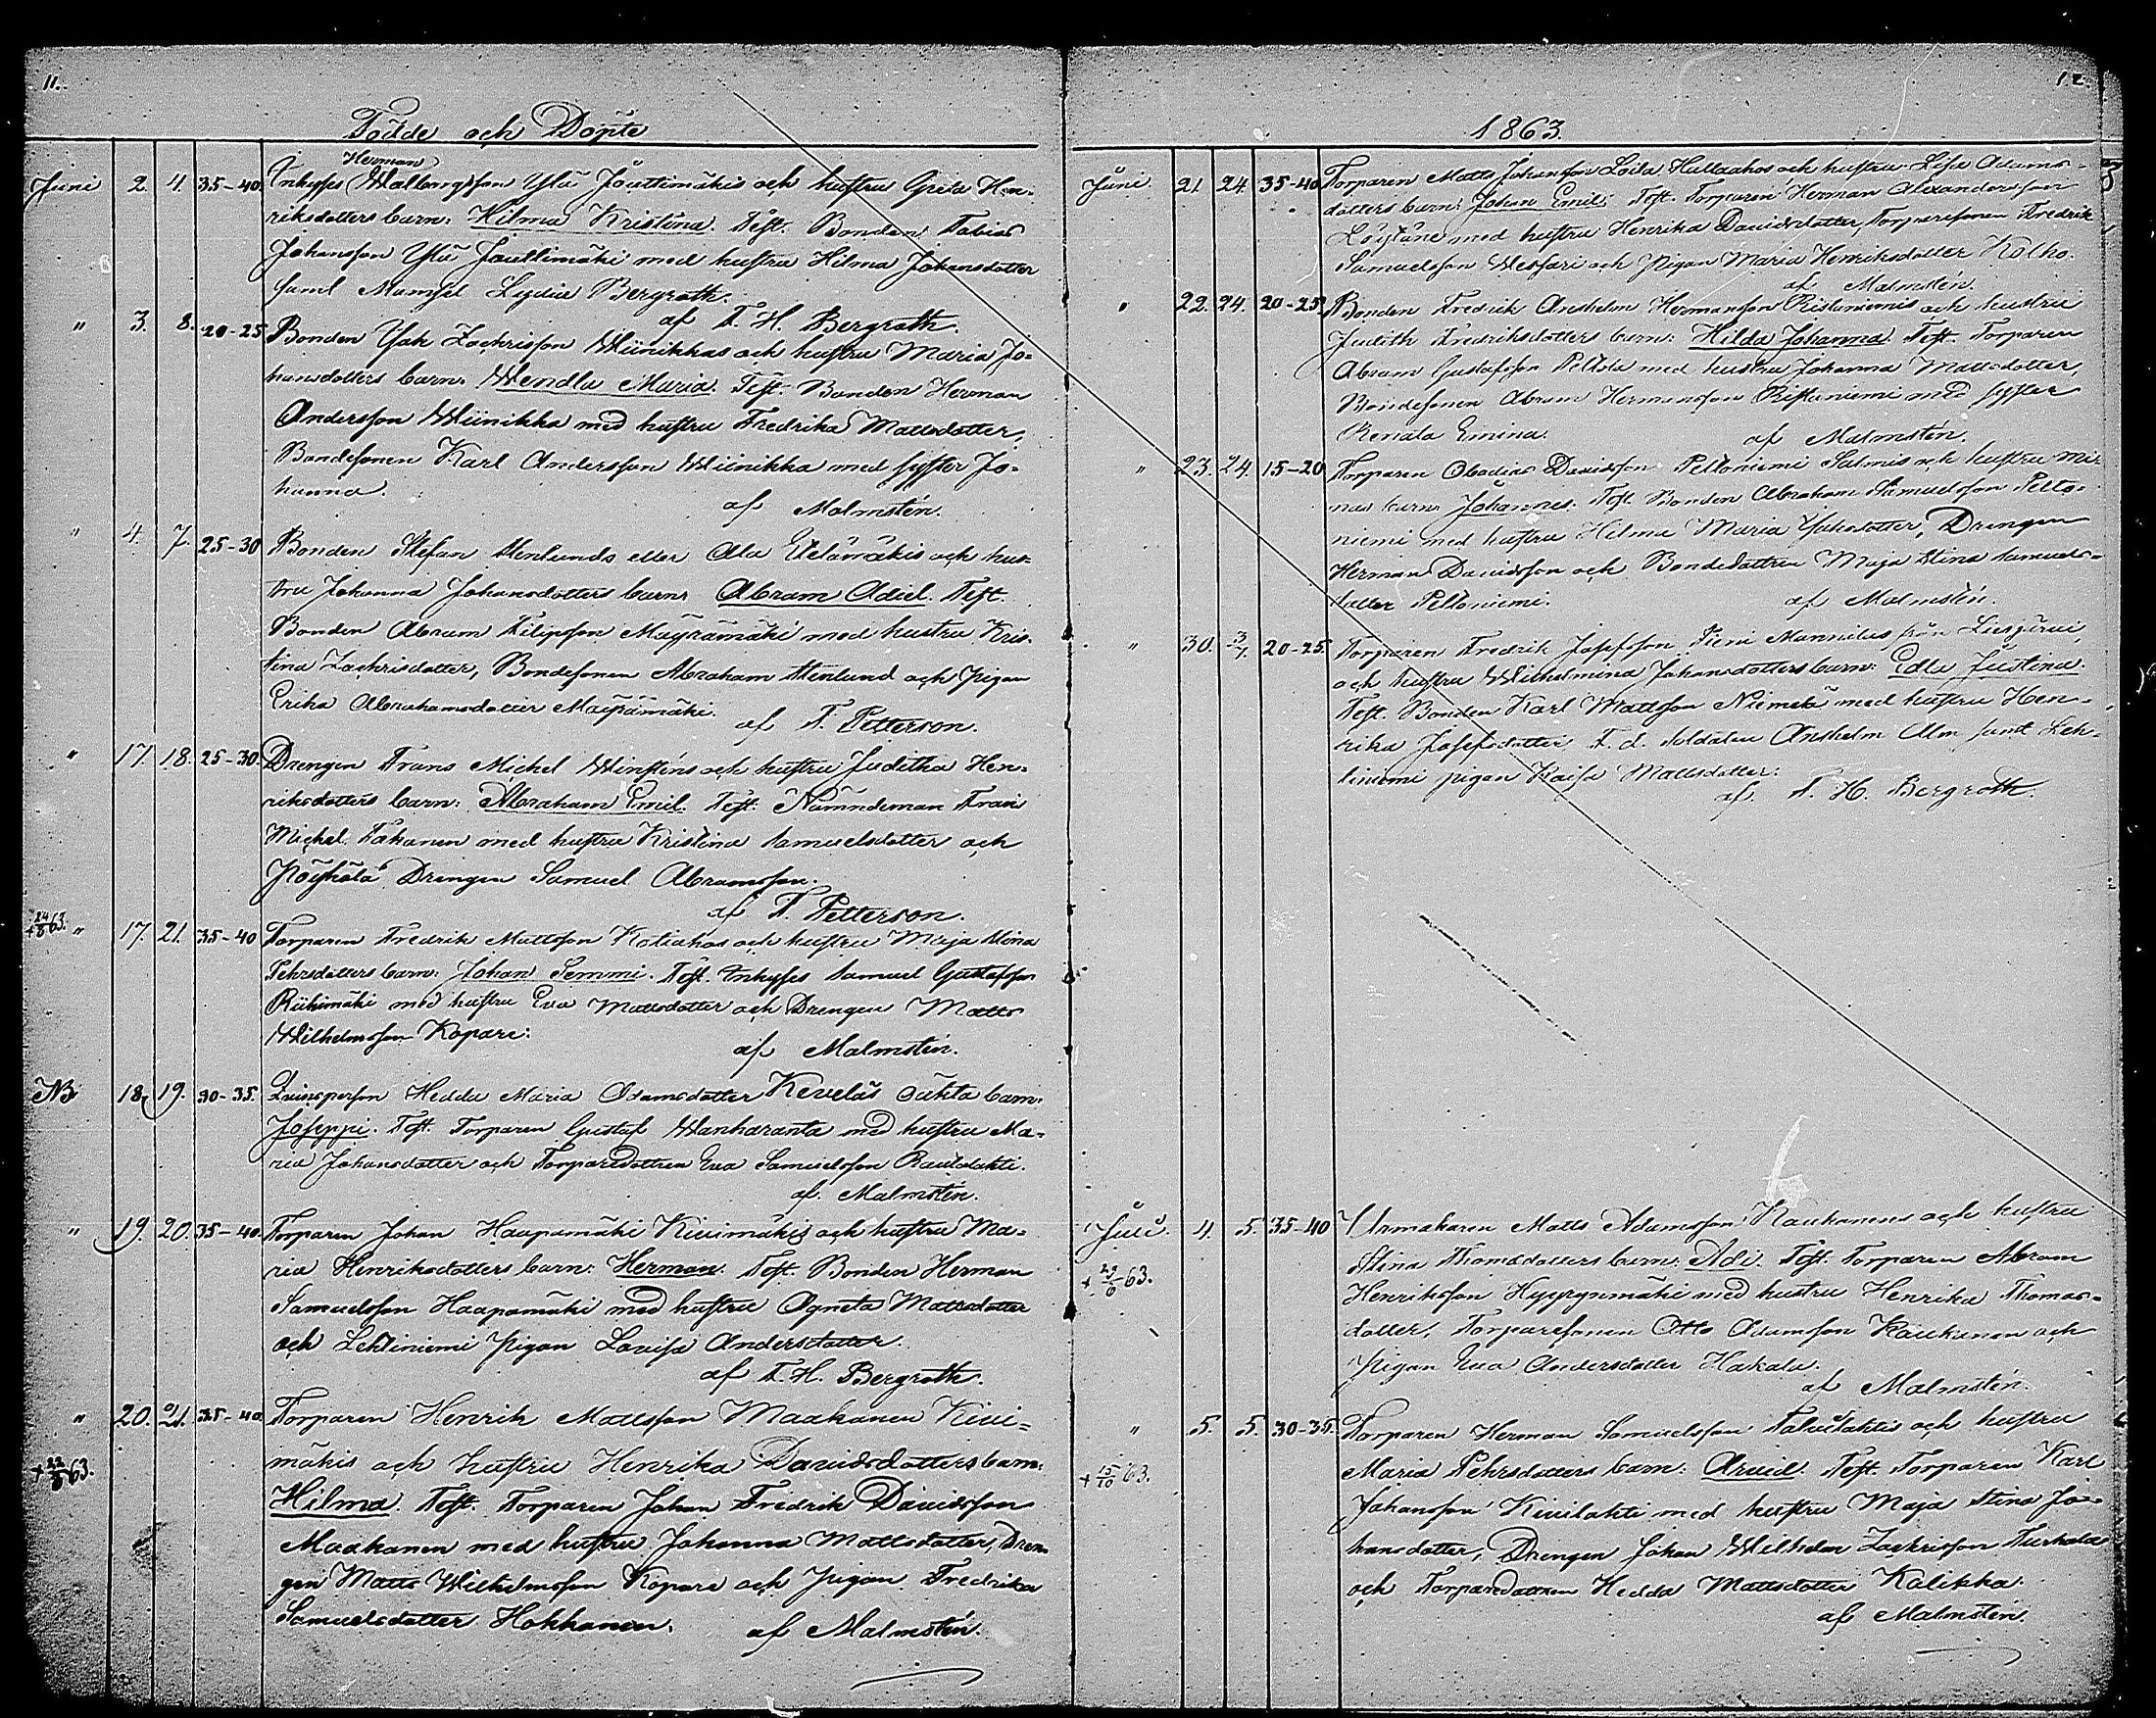 11.
Födde och Döpte
Herman
Juni 2. 4. 35-40. Inhyses Walborgsson Yli Jouttimäkis och hustru Greta Hen-
riksdotters barn: Hilma Kristina. Test. Bonden Tobias
Johansson Yli Jouttimäki med hustru Hilma Johansdotter
samt Mamsel Lydia Bergroth.
af F. H. Bergroth.
" 3. 8. 20-25 Bonden Isak Zachrisson Wiinikkas och hustru Maria Jo-
hansdotters barn: Wendla Maria. Test. Bonden Herman
Andersson Wiinikka med hustru Fredrika Mattsdotter,
Bondesonen Karl Andersson Wiinikka med syster Jo-
hanna.
af Malmstén.
" 4. 7. 25-30 Bonden Stefan Stenlunds eller Ala Etelämäkis och hus-
tru Johanna Johansdotters barn: Abram Adiel. Test.
Bonden Abram Filipsson Mäyrämäki med hustru Kris-
tina Zachrisdotter, Bondesonen Abraham Stenlund och pigan
Erika Abrahamsdotter Mäyrämäki.
af F. Petterson.
" 17. 18. 25-30. Drengen Frans Michel Winsténs och hustru Juditha Hen-
riksdotters barn: Abraham Emil. Test. Nämndeman Frans
Michel Takanen med hustru Kristina Samuelsdotter och
Pöyhölä Drengen Samuel Abramsson.
af F. Petterson.
+ 24/8 63. " 17. 21. 35-40 Torparen Fredrik Mattsson Kotiahos och hustru Maja Stina
Pehrsdotters barn: Johan Semmi. Test. Inhyses Samuel Gustafsson
Riihimäki med hustru Eva Mattsdotter och Drengen Matts
Wilhelmsson Kopare:
af Malmstén.
NB 18. 19. 30-35. Qvinsperson Hedda Maria Adamsdotter Keveläs oäkta barn:
Joseppi. Test. Torparen Gustaf Wanharanta med hustru Ma-
ria Johansdotter och Torparedottren Eva Samuelsson Rautalahti.
af Malmstén.
" 19. 20. 35-40. Torparen Johan Haapamäki Kivimäkis och hustru Ma-
ria Henriksdotters barn: Herman. Test. Bonden Herman
Samuelsson Haapamäki med hustru Agneta Mattsdotter
och Lehtiniemi Pigan Lovisa Andersdotter.
af F. H. Bergroth.
" 20. 21. 35-40. Torparen Henrik Mattsson Maakanen Kivi-
+ 22/8 63. mäkis och hustru Henrika Davidsdotters barn:
Hilma. Test. Torparen Johan Fredrik Davidsson
Maakanen med hustru Johanna Mattsdotter, Dren-
gen Matts Wilhelmsson Kopare och Pigan Fredrika
Samuelsdotter Hokkanen.
af Malmstén.
12.
1863.
Juni. 21. 24. 35-40 Torparen Matts Johansson Hallaahos och hustru Lisa Adams-
dotters barn: Johan Emil. Test. Torparen Herman Alexandersson
Löytäne med hustru Henrika Davidsdotter, Torparesonen Fredrik
Samuelsson Wessari och Pigan Maria Henriksdotter Kolho.
af Malmstén.
" 22. 24. 20-25. Bonden Fredrik Anshelm Hermansson Ristaniemis och hustru
Judith Fredriksdotters barn: Hilda Johanna. Test. Torparen
Abram Gustafsson Peltola med hustru Johanna Mattsdotter,
Bondesonen Abram Hermansson Ristaniemi med syster
Renata Emina.
af Malmstén.
" 23. 24. 15-20 Torparen Obadias Davidsson Peltoniemi Salmis och hustru Mi-
nas barn: Johannes. Test. Bonden Abraham Samuelsson Pelto-
niemi med hustru Hilma Maria Isaksdotter, Drengen
Herman Davidsson och Bondedottren Maja Stina Samuels-
dotter Peltoniemi.
af Malmstén.
" 30. 3/7. 20-25. Torparen Fredrik Josefsson Pieni Mannilas från Liesjärvi,
och hustru Wilhelmina Johansdotters barn: Edla Justina.
Test. Bonden Karl Mattsson Niemelä med hustru Hen-
rika Josefsdotter F. d. Soldaten Anshelm Alm samt Leh-
tiniemi pigan Kaisa Mattsdotter:
af F. H. Bergroth.
Juli. 4. 5. 35-40 Urmakaren Matts Adamsson Kaukanens och hustru
+ 29/6 63. Stina Thomasdotters barn: Adi. Test. Torparen Abram
Henriksson Hyypynmäki med hustru Henrika Thomas-
dotter, Torparesonen Otto Adamsson Kaukanen och
Pigan Eva Andersdotter Hakala.
af Malmstén.
" 5. 5. 30-35. Torparen Herman Samuelsson Talvilahtis och hustru
+ 15/10 63. Maria Pehrsdotters barn: Arvid. Test. Torparen Karl
Johansson Kivilahti med hustru Maja Stina Jo-
hansdotter, Drengen Johan Wilhelm Zachrisson Turhala
och Torparedottren Hedda Mattsdotter Kalikka.
af Malmstén.